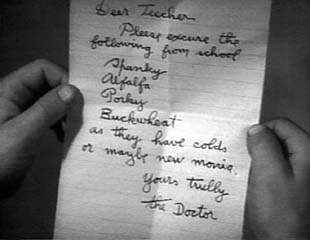 Dear Teecher
Pleese excuse the
following from school
Spanky
Alfalfa
Porky
Buckwheat
as they have colds
or maybe new monia.
Yours trully
the Doctor